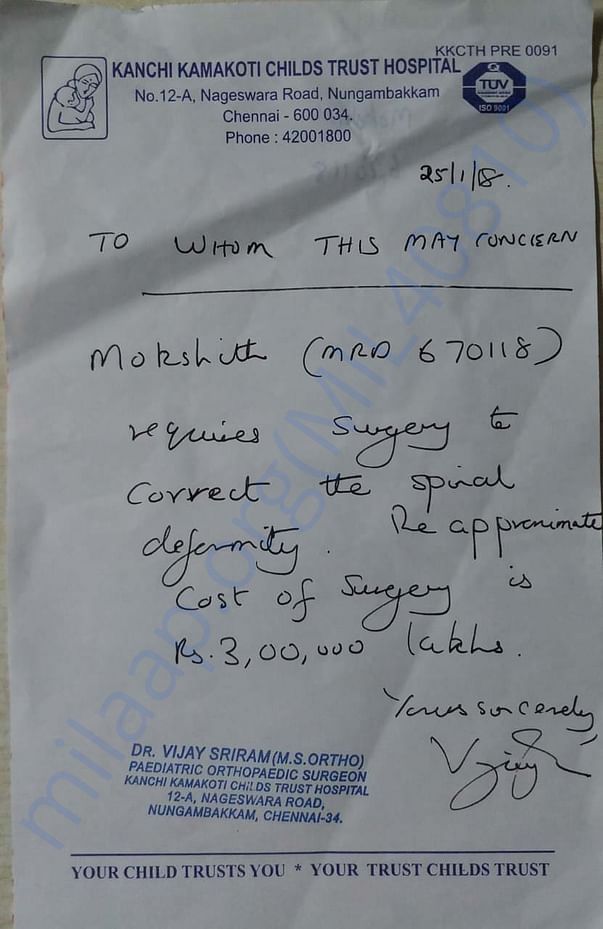 KKCTH PRE 0091
KANCHI KAMAKOTI CHILDS TRUST HOSPITAL
No.12-A, Nageswara Road, Nungambakkam
Chennai - 600 034.
Phone : 42001800
TUV
ISO 9001
25/1/18.
TO WHOM THIS MAY CONCERN
Mokshith (MRD 670118)
requires Surgery to
correct the spinal
deformity. The approximate
Cost of Surgery is
Rs. 3,00,000 lakhs.
Yours sincerely,
DR. VIJAY SRIRAM (M.S.ORTHO)
PAEDIATRIC ORTHOPAEDIC SURGEON
KANCHI KAMAKOTI CHILDS TRUST HOSPITAL
12-A, NAGESWARA ROAD,
NUNGAMBAKKAM, CHENNAI-34.
YOUR CHILD TRUSTS YOU * YOUR TRUST CHILDS TRUST
milaap.org(MIL40810)